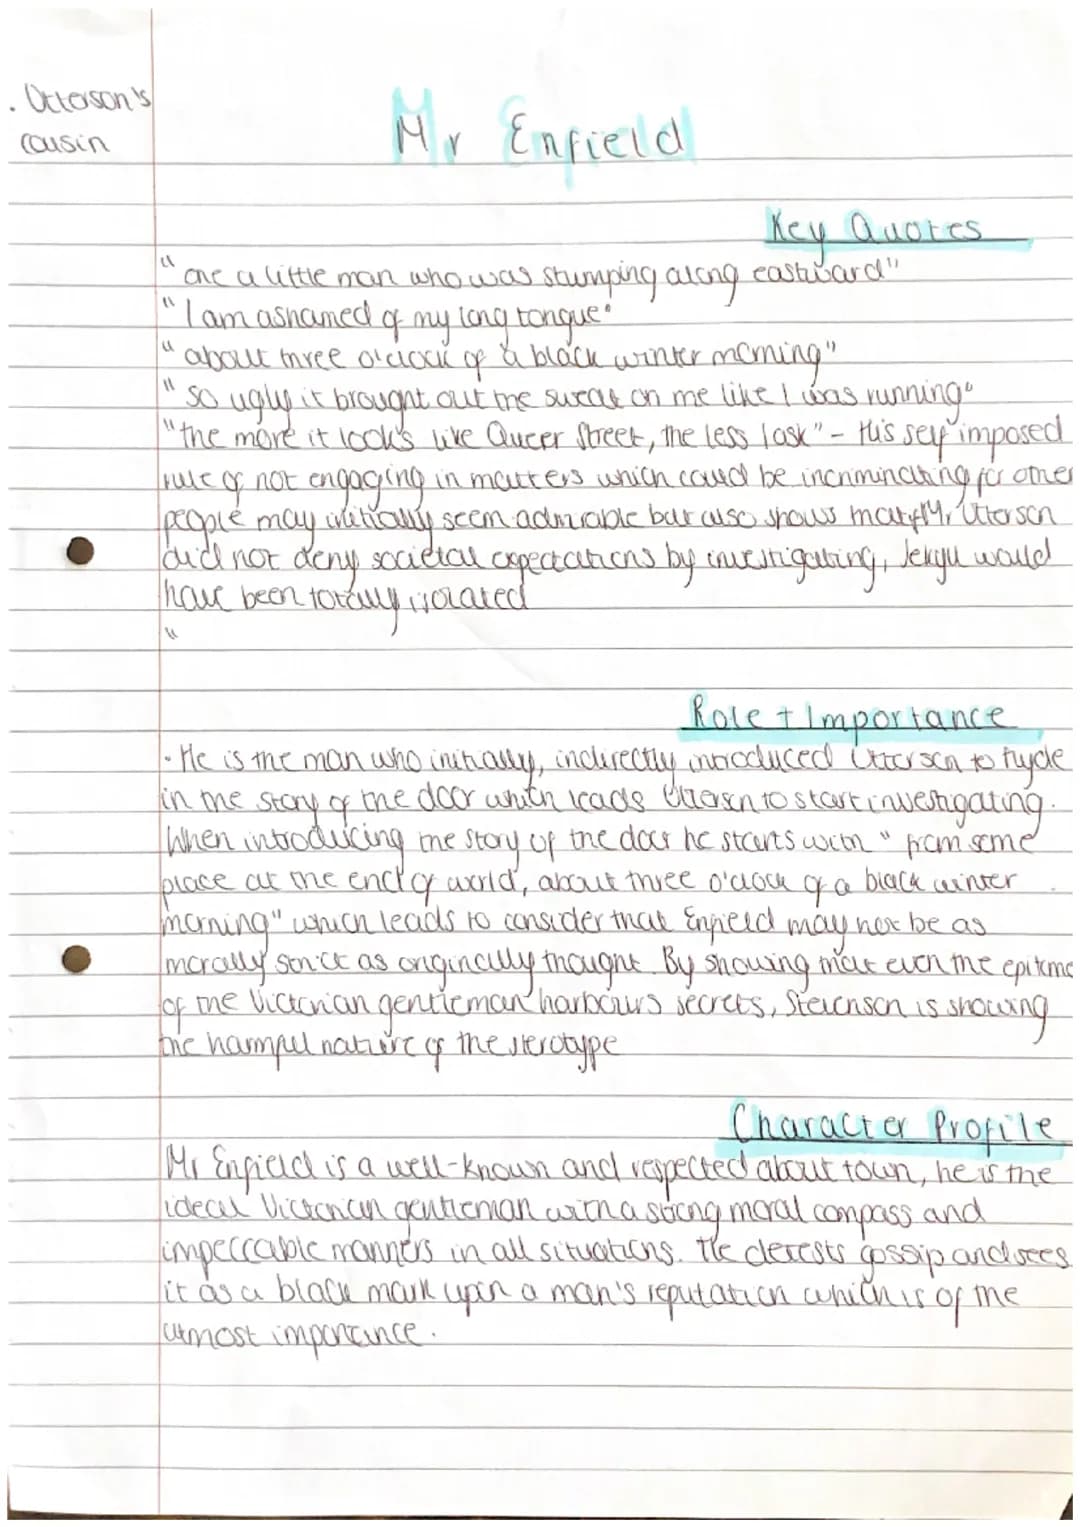 . Utterson's
cousin
Mr Enfield
Key Quotes
"one a little man who was stumping along eastward"
"I am ashamed of my long tongue"
"about three o'clock of a black winter morning"
"so ugly it brought out the sweat on me like I was running"
"the more it looks like Queer Street, the less I ask" - His self imposed
rule of not engaging in matters which could be incriminating for other
people may initially seem admirable but also shows that if Mr Utterson
did not deny societal expectations by investigating, Jekyll would
have been totally isolated
"
Role + Importance
· He is the man who initially, indirectly introduced Utterson to Hyde
in the story of the door which leads Utterson to start investigating.
When introducing the story of the door he starts with "from some
place at the end of world, about three o'clock of a black winter
morning" which leads to consider that Enfield may not be as
morally strict as originally thought. By showing that even the epitome
of the Victorian gentleman harbours secrets, Stevenson is showing
the harmful nature of the sterotype
Character Profile
Mr Enfield is a well-known and respected about town, he is the
ideal Victorian gentleman with a strong moral compass and
impeccable manners in all situations. He detests gossip and sees
it as a black mark upon a man's reputation which is of the
utmost importance.